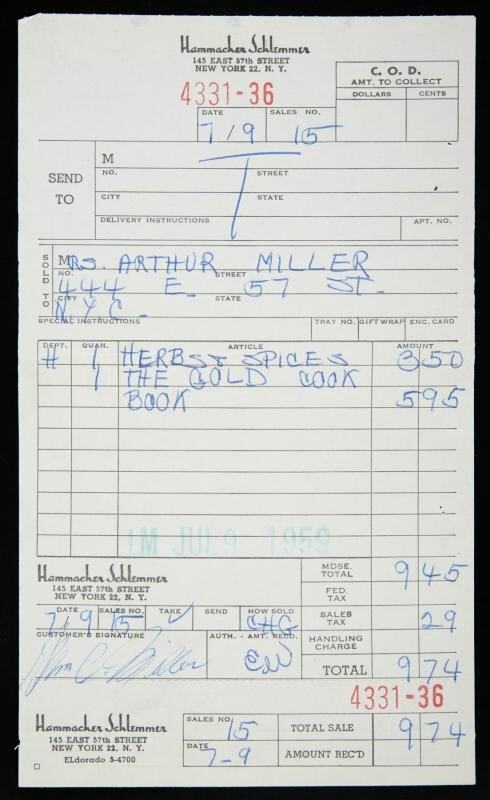 Hammacher Schlemmer
145 EAST 57th STREET
NEW YORK 22, N. Y.
4331-36
C. O. D.
AMT. TO COLLECT
DOLLARS CENTS
DATE SALES NO.
7/9 15
SEND TO
M
NO. STREET
CITY STATE
DELIVERY INSTRUCTIONS APT. NO.
SOLD TO
MRS. ARTHUR MILLER
NO. STREET
444 E. 57 ST.
CITY STATE
N.Y.C.
SPECIAL INSTRUCTIONS TRAY NO. GIFT WRAP ENC. CARD
DEPT. QUAN. ARTICLE AMOUNT
# 1 HERBS & SPICES 350
1 THE GOLD COOK
BOOK 595
LM JUL 9 1959
Hammacher Schlemmer
145 EAST 57th STREET
NEW YORK 22, N. Y.
MDSE. TOTAL 945
FED. TAX
SALES TAX 29
HANDLING CHARGE
TOTAL 974
DATE SALES NO. TAKE SEND HOW SOLD
7/9 15 ✓ CHG
CUSTOMER'S SIGNATURE AUTH. - AMT. RECD.
Miller
4331-36
Hammacher Schlemmer
145 EAST 57th STREET
NEW YORK 22, N. Y.
ELdorado 5-4700
SALES NO. 15 TOTAL SALE 974
DATE 7-9 AMOUNT REC'D